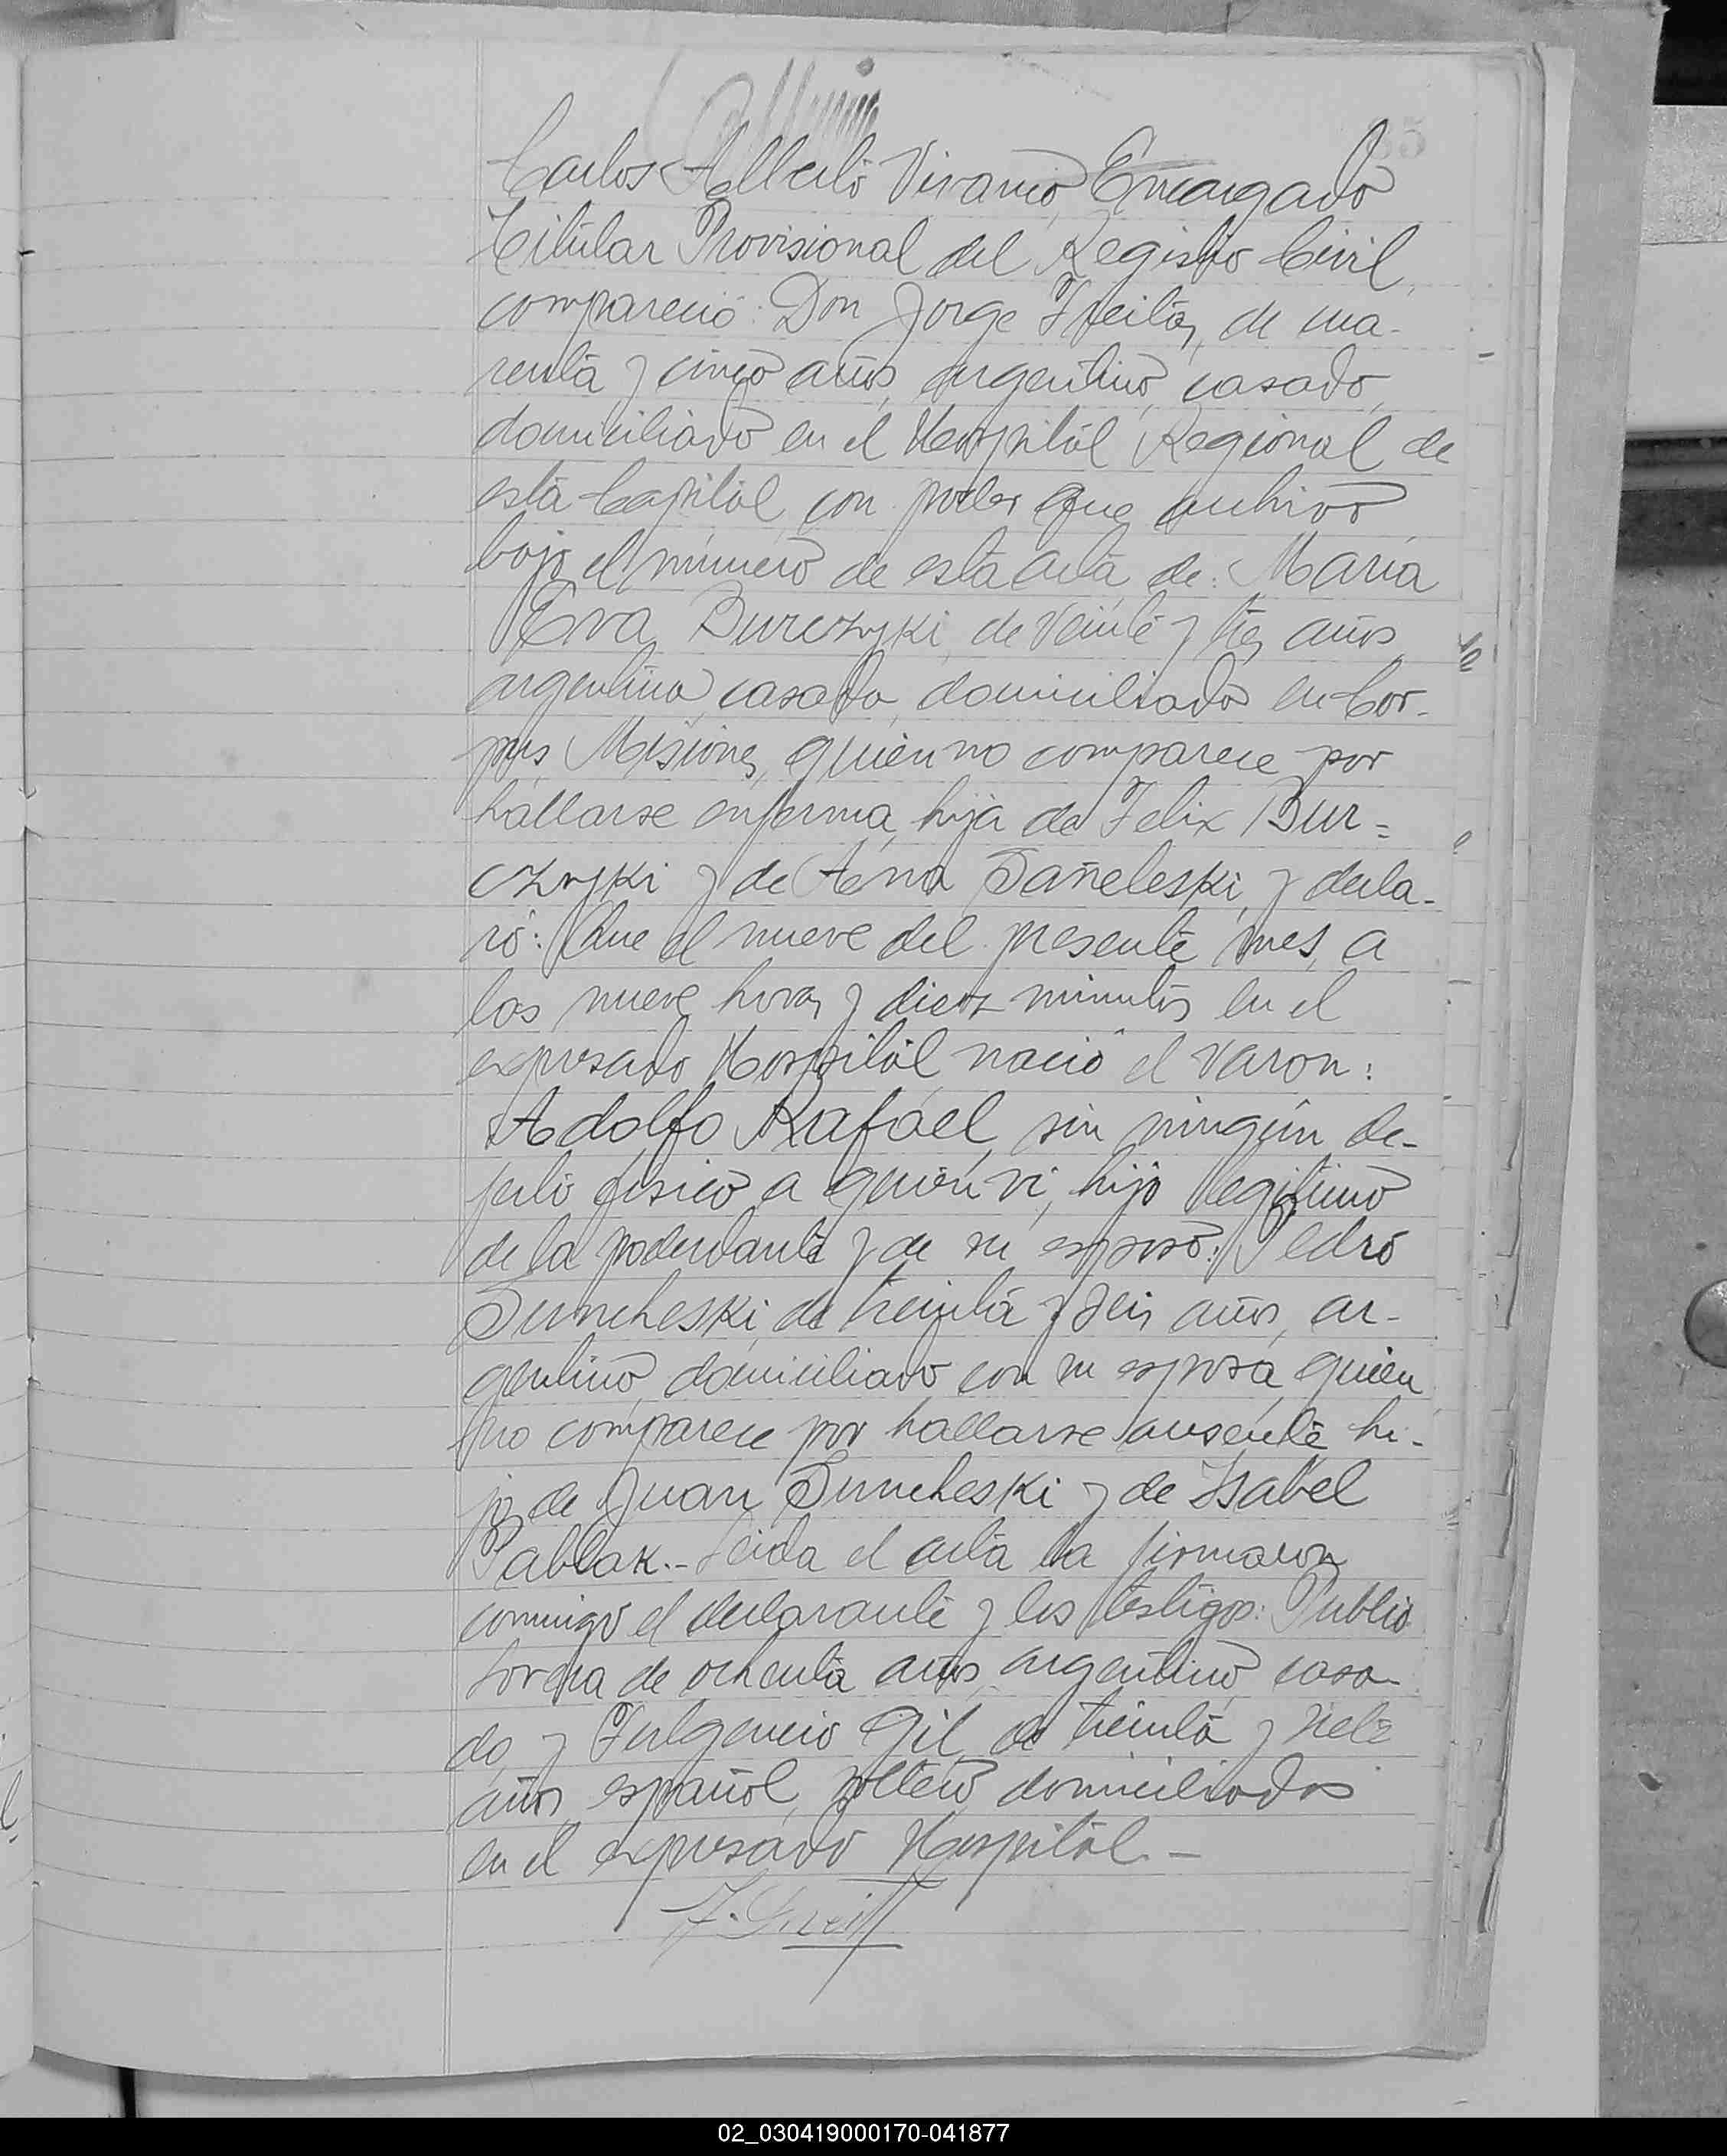 85
Carlos Alberto Vivanco, Encargado
Titular Provisional del Registro Civil,
compareció: Don Jorge Freitas, de cua-
renta y cinco años, argentino, casado,
domiciliado en el Hospital Regional de
esta Capital, con poder que archivo
bajo el número de esta acta, de: María
Eva Burczyki, de veinte y tres años,
argentina, casada, domiciliada en Cor-
pus, Misiones, quien no comparece por
hallarse enferma, hija de Felix Bur=
czyki y de Ana Dañeleski, y decla-
ró: Que el nueve del presente mes, a
las nueve horas y diez minutos en el
expresado Hospital nació el varon:
Adolfo Rafael, sin ningún de-
fecto físico a quien ví, hijo legítimo
de la poderdante y de su esposo: Pedro
Suncheski, de treinta y seis años, ar-
gentino, domiciliado con su esposa, quien
no comparece por hallarse ausente, hi-
jo de Juan Suncheski y de Isabel
Pablak.- Leida el acta la firmaron
conmigo el declarante y los testigos: Publio
de ochenta años, argentino, casa-
do, y Fulgencio Gil, de treinta y siete
años, español, soltero, domiciliados
en el expresado Hospital.-
02_030419000170-041877